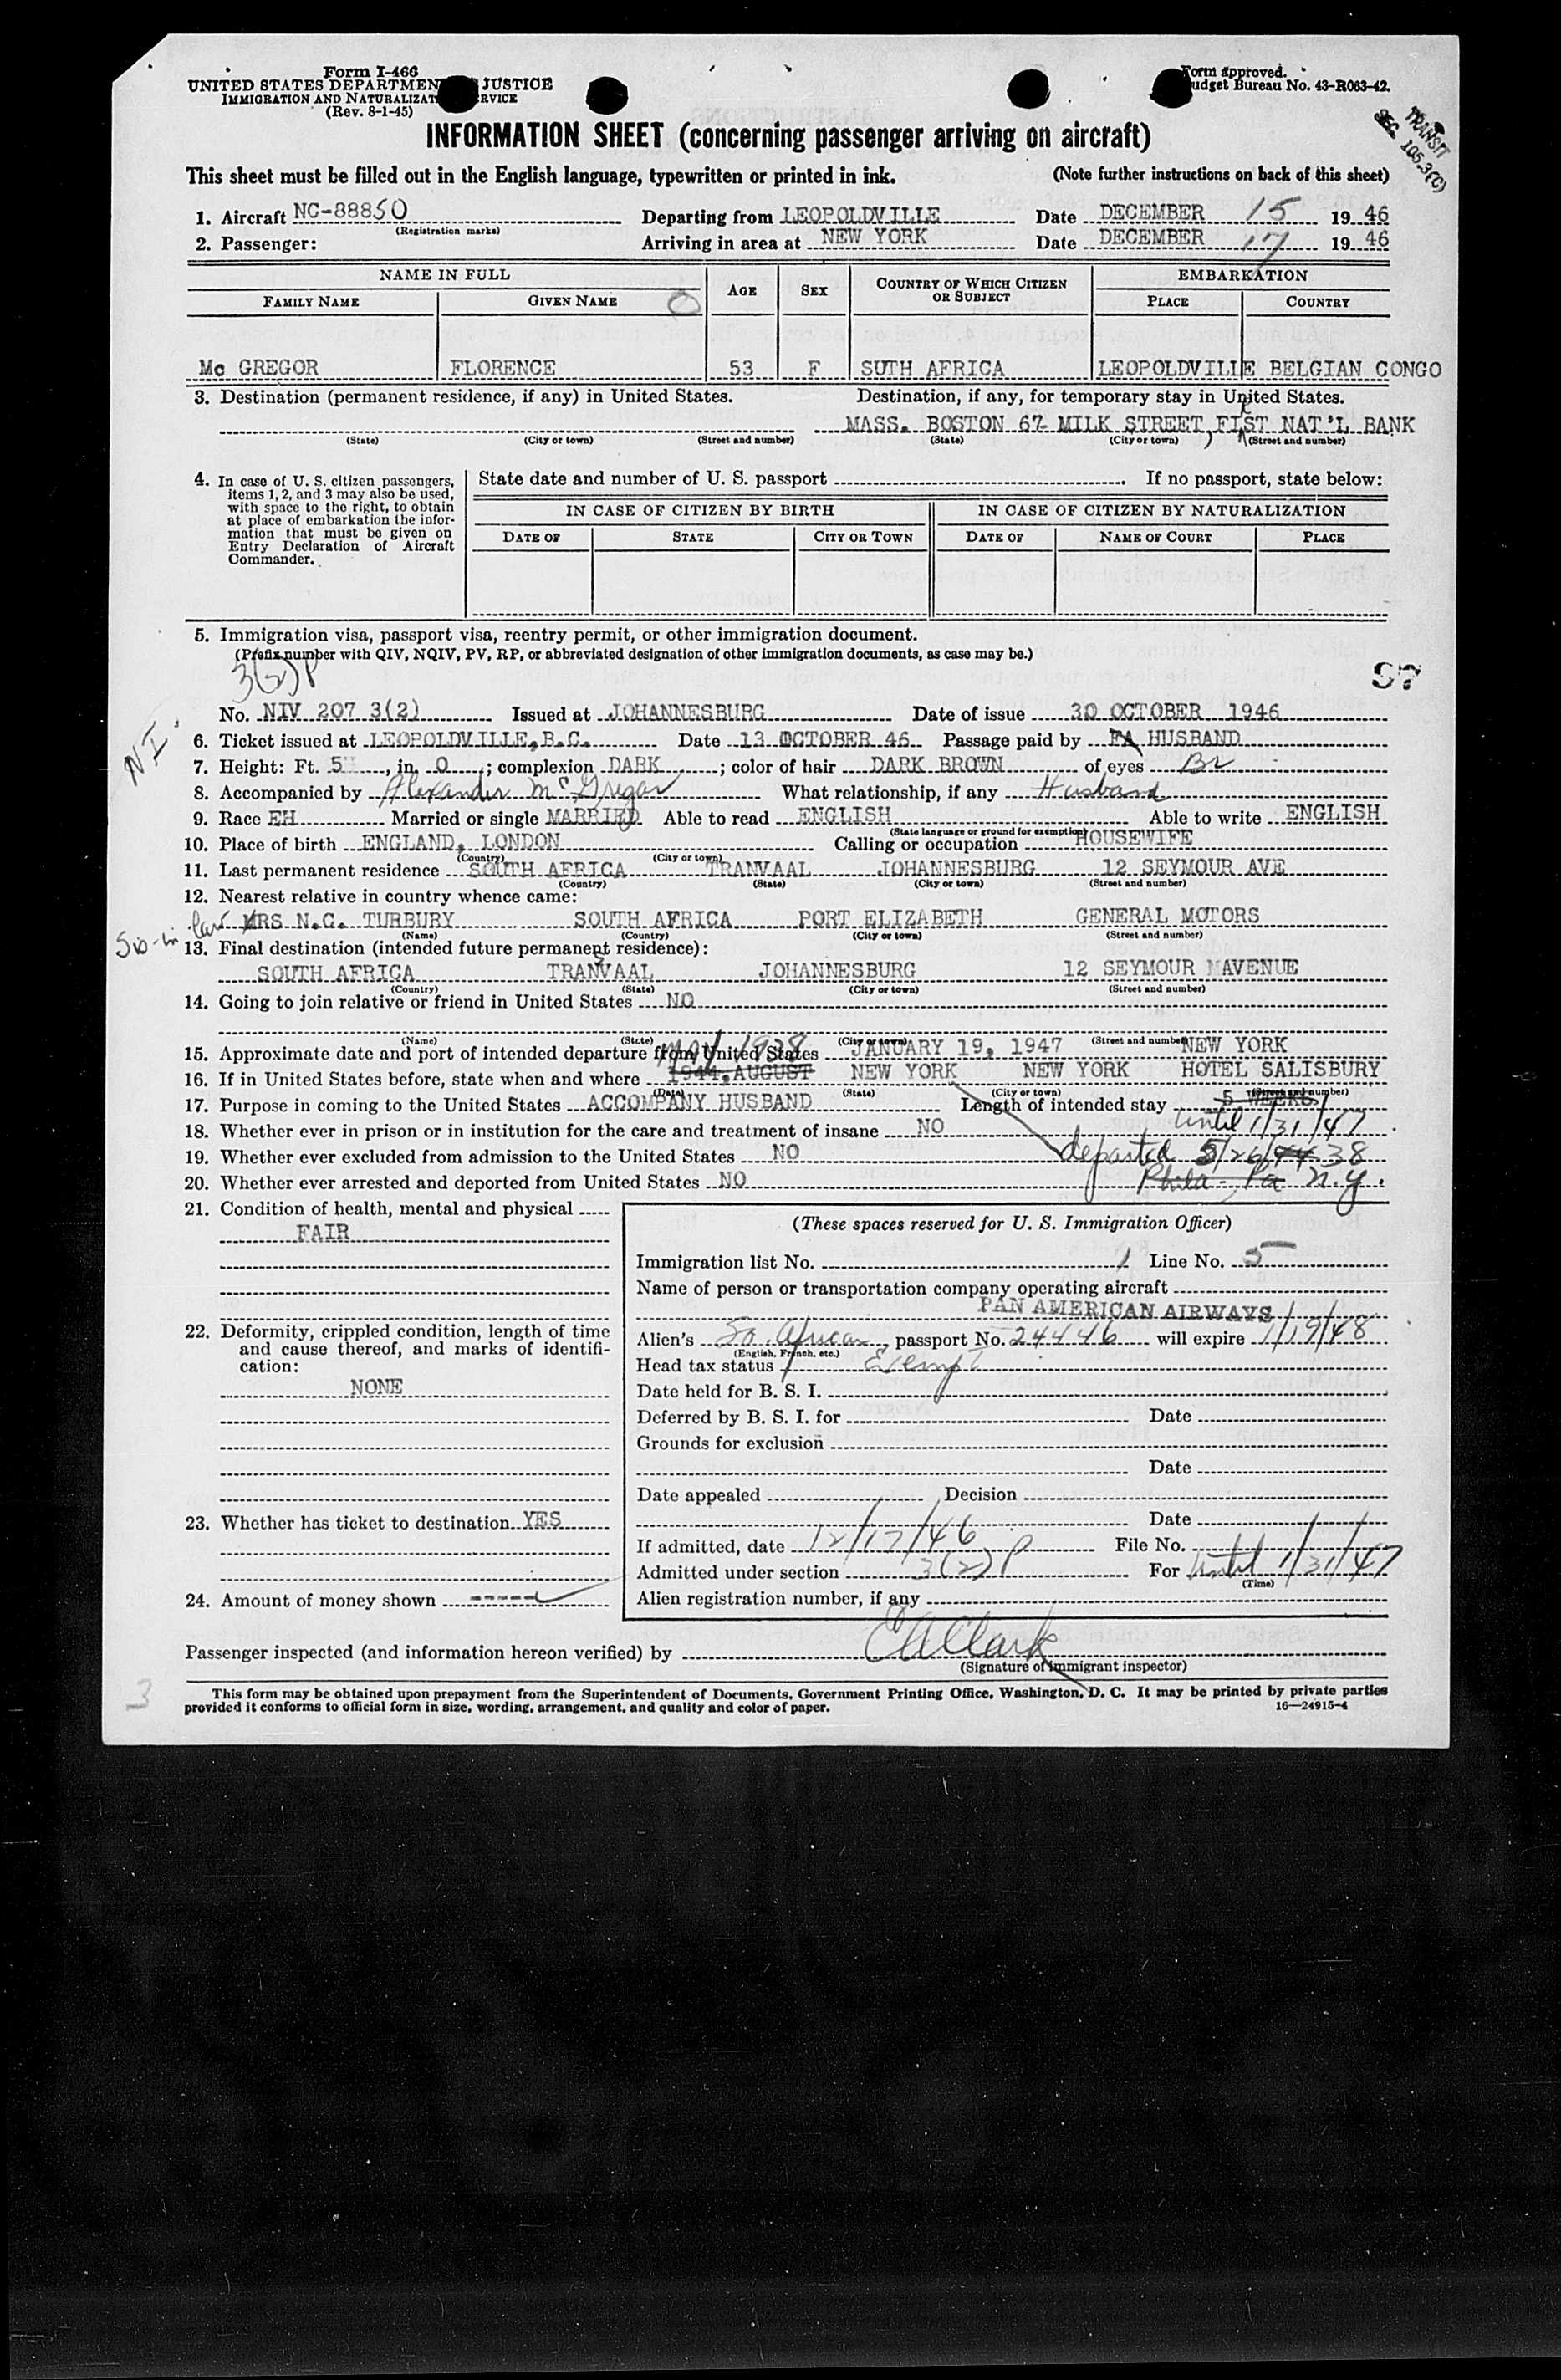 Form I-466
UNITED STATES DEPARTMEN JUSTICE
IMMIGRATION AND NATURALIZAT RVICE
(Rev. 8-1-45)
Form approved.
udget Bureau No. 43-R063-42.
TRANSIT
SEC 105.3(C)
INFORMATION SHEET (concerning passenger arriving on aircraft)
This sheet must be filled out in the English language, typewritten or printed in ink. (Note further instructions on back of this sheet)
1. Aircraft NC-88850 Departing from LEOPOLDVILLE Date DECEMBER 15 1946
(Registration marks)
2. Passenger: Arriving in area at NEW YORK Date DECEMBER 17 1946
NAME IN FULL AGE SEX COUNTRY OF WHICH CITIZEN OR SUBJECT EMBARKATION
FAMILY NAME GIVEN NAME PLACE COUNTRY
Mc GREGOR FLORENCE 53 F SUTH AFRICA LEOPOLDVILLE BELGIAN CONGO
3. Destination (permanent residence, if any) in United States. Destination, if any, for temporary stay in United States.
MASS. BOSTON 67 MILK STREET, FIRST NAT'L BANK
(State) (City or town) (Street and number) (State) (City or town) (Street and number)
4. In case of U. S. citizen passengers, items 1, 2, and 3 may also be used, with space to the right, to obtain at place of embarkation the information that must be given on Entry Declaration of Aircraft Commander.
State date and number of U. S. passport If no passport, state below:
IN CASE OF CITIZEN BY BIRTH IN CASE OF CITIZEN BY NATURALIZATION
DATE OF STATE CITY OR TOWN DATE OF NAME OF COURT PLACE
5. Immigration visa, passport visa, reentry permit, or other immigration document.
(Prefix number with QIV, NQIV, PV, RP, or abbreviated designation of other immigration documents, as case may be.)
3(2)P
97
NI
No. NIV 207 3(2) Issued at JOHANNESBURG Date of issue 30 OCTOBER 1946
6. Ticket issued at LEOPOLDVILLE, B.C. Date 13 OCTOBER 46 Passage paid by HUSBAND
7. Height: Ft. 5, in. 0; complexion DARK; color of hair DARK BROWN of eyes Br
8. Accompanied by Alexander McGregor What relationship, if any Husband
9. Race EH Married or single MARRIED Able to read ENGLISH Able to write ENGLISH
(State language or ground for exemption)
10. Place of birth ENGLAND, LONDON Calling or occupation HOUSEWIFE
(Country) (City or town)
11. Last permanent residence SOUTH AFRICA TRANVAAL JOHANNESBURG 12 SEYMOUR AVE
(Country) (State) (City or town) (Street and number)
12. Nearest relative in country whence came:
Sis-in law MRS N.C. TURBURY SOUTH AFRICA PORT ELIZABETH GENERAL MOTORS
(Name) (Country) (City or town) (Street and number)
13. Final destination (intended future permanent residence):
SOUTH AFRICA TRANSVAAL JOHANNESBURG 12 SEYMOUR AVENUE
(Country) (State) (City or town) (Street and number)
14. Going to join relative or friend in United States NO
(Name) (State) (City or town) (Street and number)
15. Approximate date and port of intended departure from United States JANUARY 19, 1947 NEW YORK
May 1938
16. If in United States before, state when and where 1944, AUGUST NEW YORK NEW YORK HOTEL SALISBURY
(Date) (State) (City or town) (Street and number)
17. Purpose in coming to the United States ACCOMPANY HUSBAND Length of intended stay 5 WEEKS
until 1/31/47
18. Whether ever in prison or in institution for the care and treatment of insane NO
19. Whether ever excluded from admission to the United States NO departed 5/26/44 38
20. Whether ever arrested and deported from United States NO Phila - Pa N.Y.
21. Condition of health, mental and physical
FAIR
22. Deformity, crippled condition, length of time and cause thereof, and marks of identification:
NONE
23. Whether has ticket to destination YES
24. Amount of money shown -----
(These spaces reserved for U. S. Immigration Officer)
Immigration list No. 1 Line No. 5
Name of person or transportation company operating aircraft
PAN AMERICAN AIRWAYS
Alien's So. African, passport No. 24446 will expire 1/19/48
(English, French, etc.)
Head tax status Exempt
Date held for B. S. I.
Deferred by B. S. I. for Date
Grounds for exclusion
Date
Date appealed Decision
Date
If admitted, date 12/17/46 File No.
Admitted under section 3(2) P For until 1/31/47
(Time)
Alien registration number, if any
Passenger inspected (and information hereon verified) by E A Clark
(Signature of immigrant inspector)
3
This form may be obtained upon prepayment from the Superintendent of Documents, Government Printing Office, Washington, D. C. It may be printed by private parties
provided it conforms to official form in size, wording, arrangement, and quality and color of paper. 16—24915-4